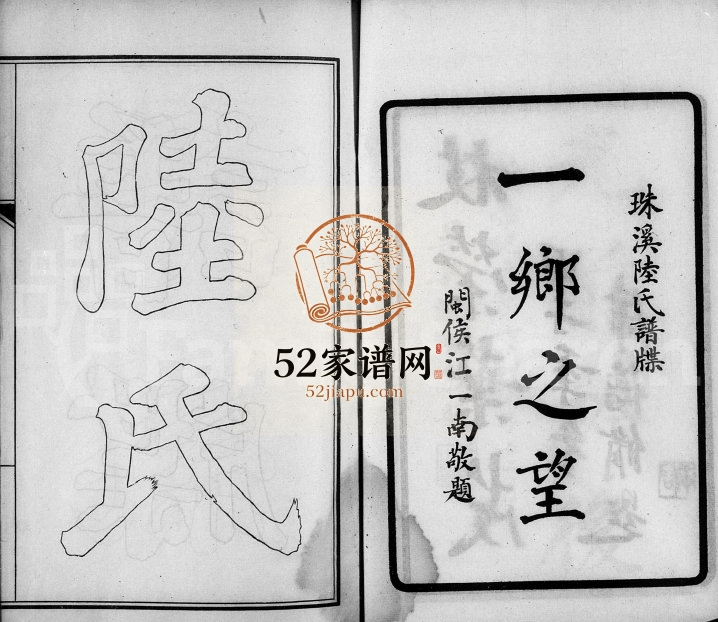 珠溪陸氏譜牒
一鄉之望
閩侯江一南敬題
陸氏
52家谱网
52jiapu.com